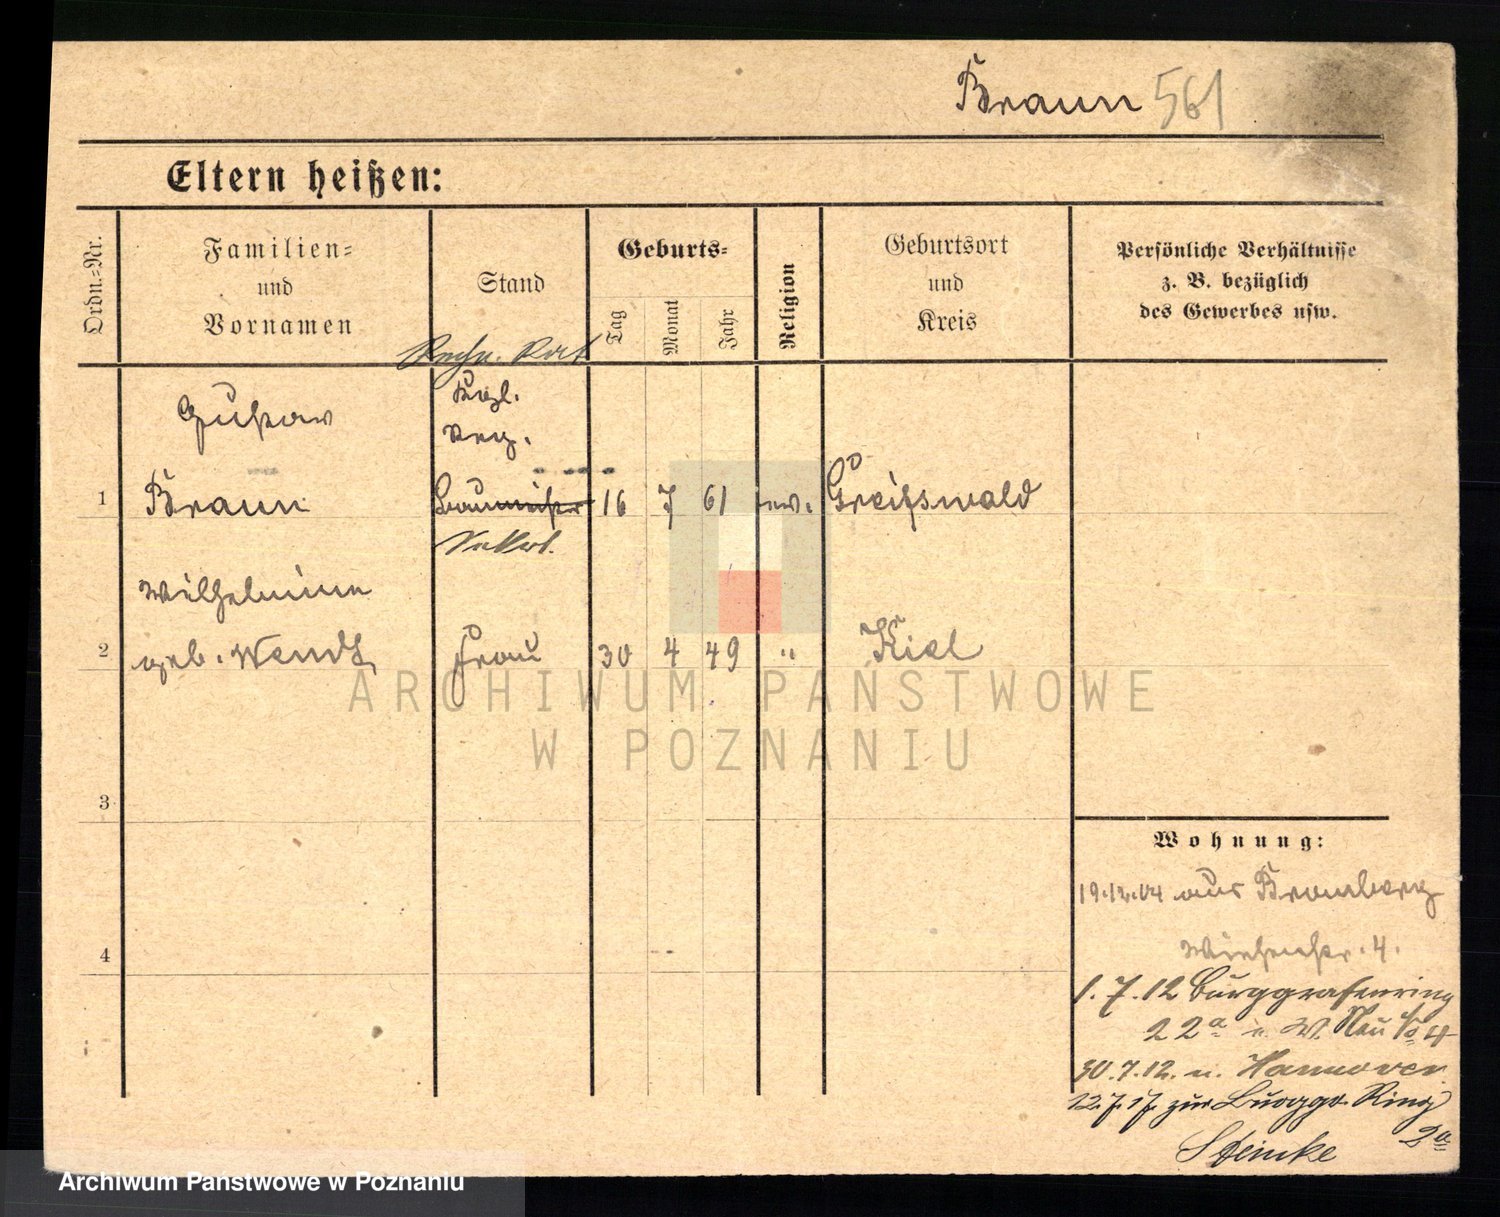 Braun 561
Eltern heißen:
Ordn.=Nr.
Familien=
und
Vornamen
Stand
Geburts=
Tag
Monat
Jahr
Religion
Geburtsort
und
Kreis
Persönliche Verhältnisse
z. B. bezüglich
des Gewerbes usw.
Rechn. Rat
Gustav
Kgl.
Reg.
1 Braun 16 7 61 ev. Greifswald
Sekret.
Wilhelmine
2 geb. Wendt Frau 30 4 49 " Kiel
3
4
Wohnung:
19.12.04 aus Bromberg
4.
1.7.12 Burggrafenring
22a
30.7.12. n. Hannover
12.7.17. zur Burggr. Ring
2a
Steinke
ARCHIWUM PAŃSTWOWE
W POZNANIU
Archiwum Państwowe w Poznaniu